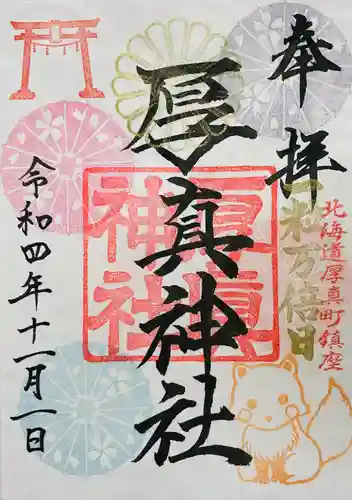 奉拝
一粒万倍日
北海道厚真町鎮座
厚真神社
厚真
神社
令和四年十一月一日